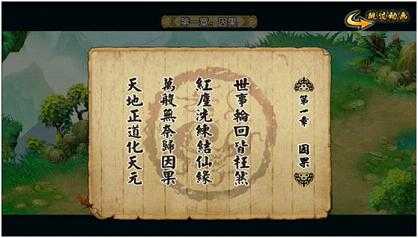 第一章、因果
跳过动画
第一章 因果
世事輪回皆枉然
紅塵洗練結仙緣
萬般無奈歸因果
天地正道化天元